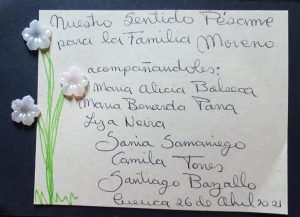 Nuestro Sentido Pésame
para la Familia Moreno.
acompañandoles:
Maria Alicia Balseca
Maria Bernarda Parra
Liza Neira
Sonia Samaniego
Camila Torres
Santiago Barzallo
Cuenca 26 de Abril 2021